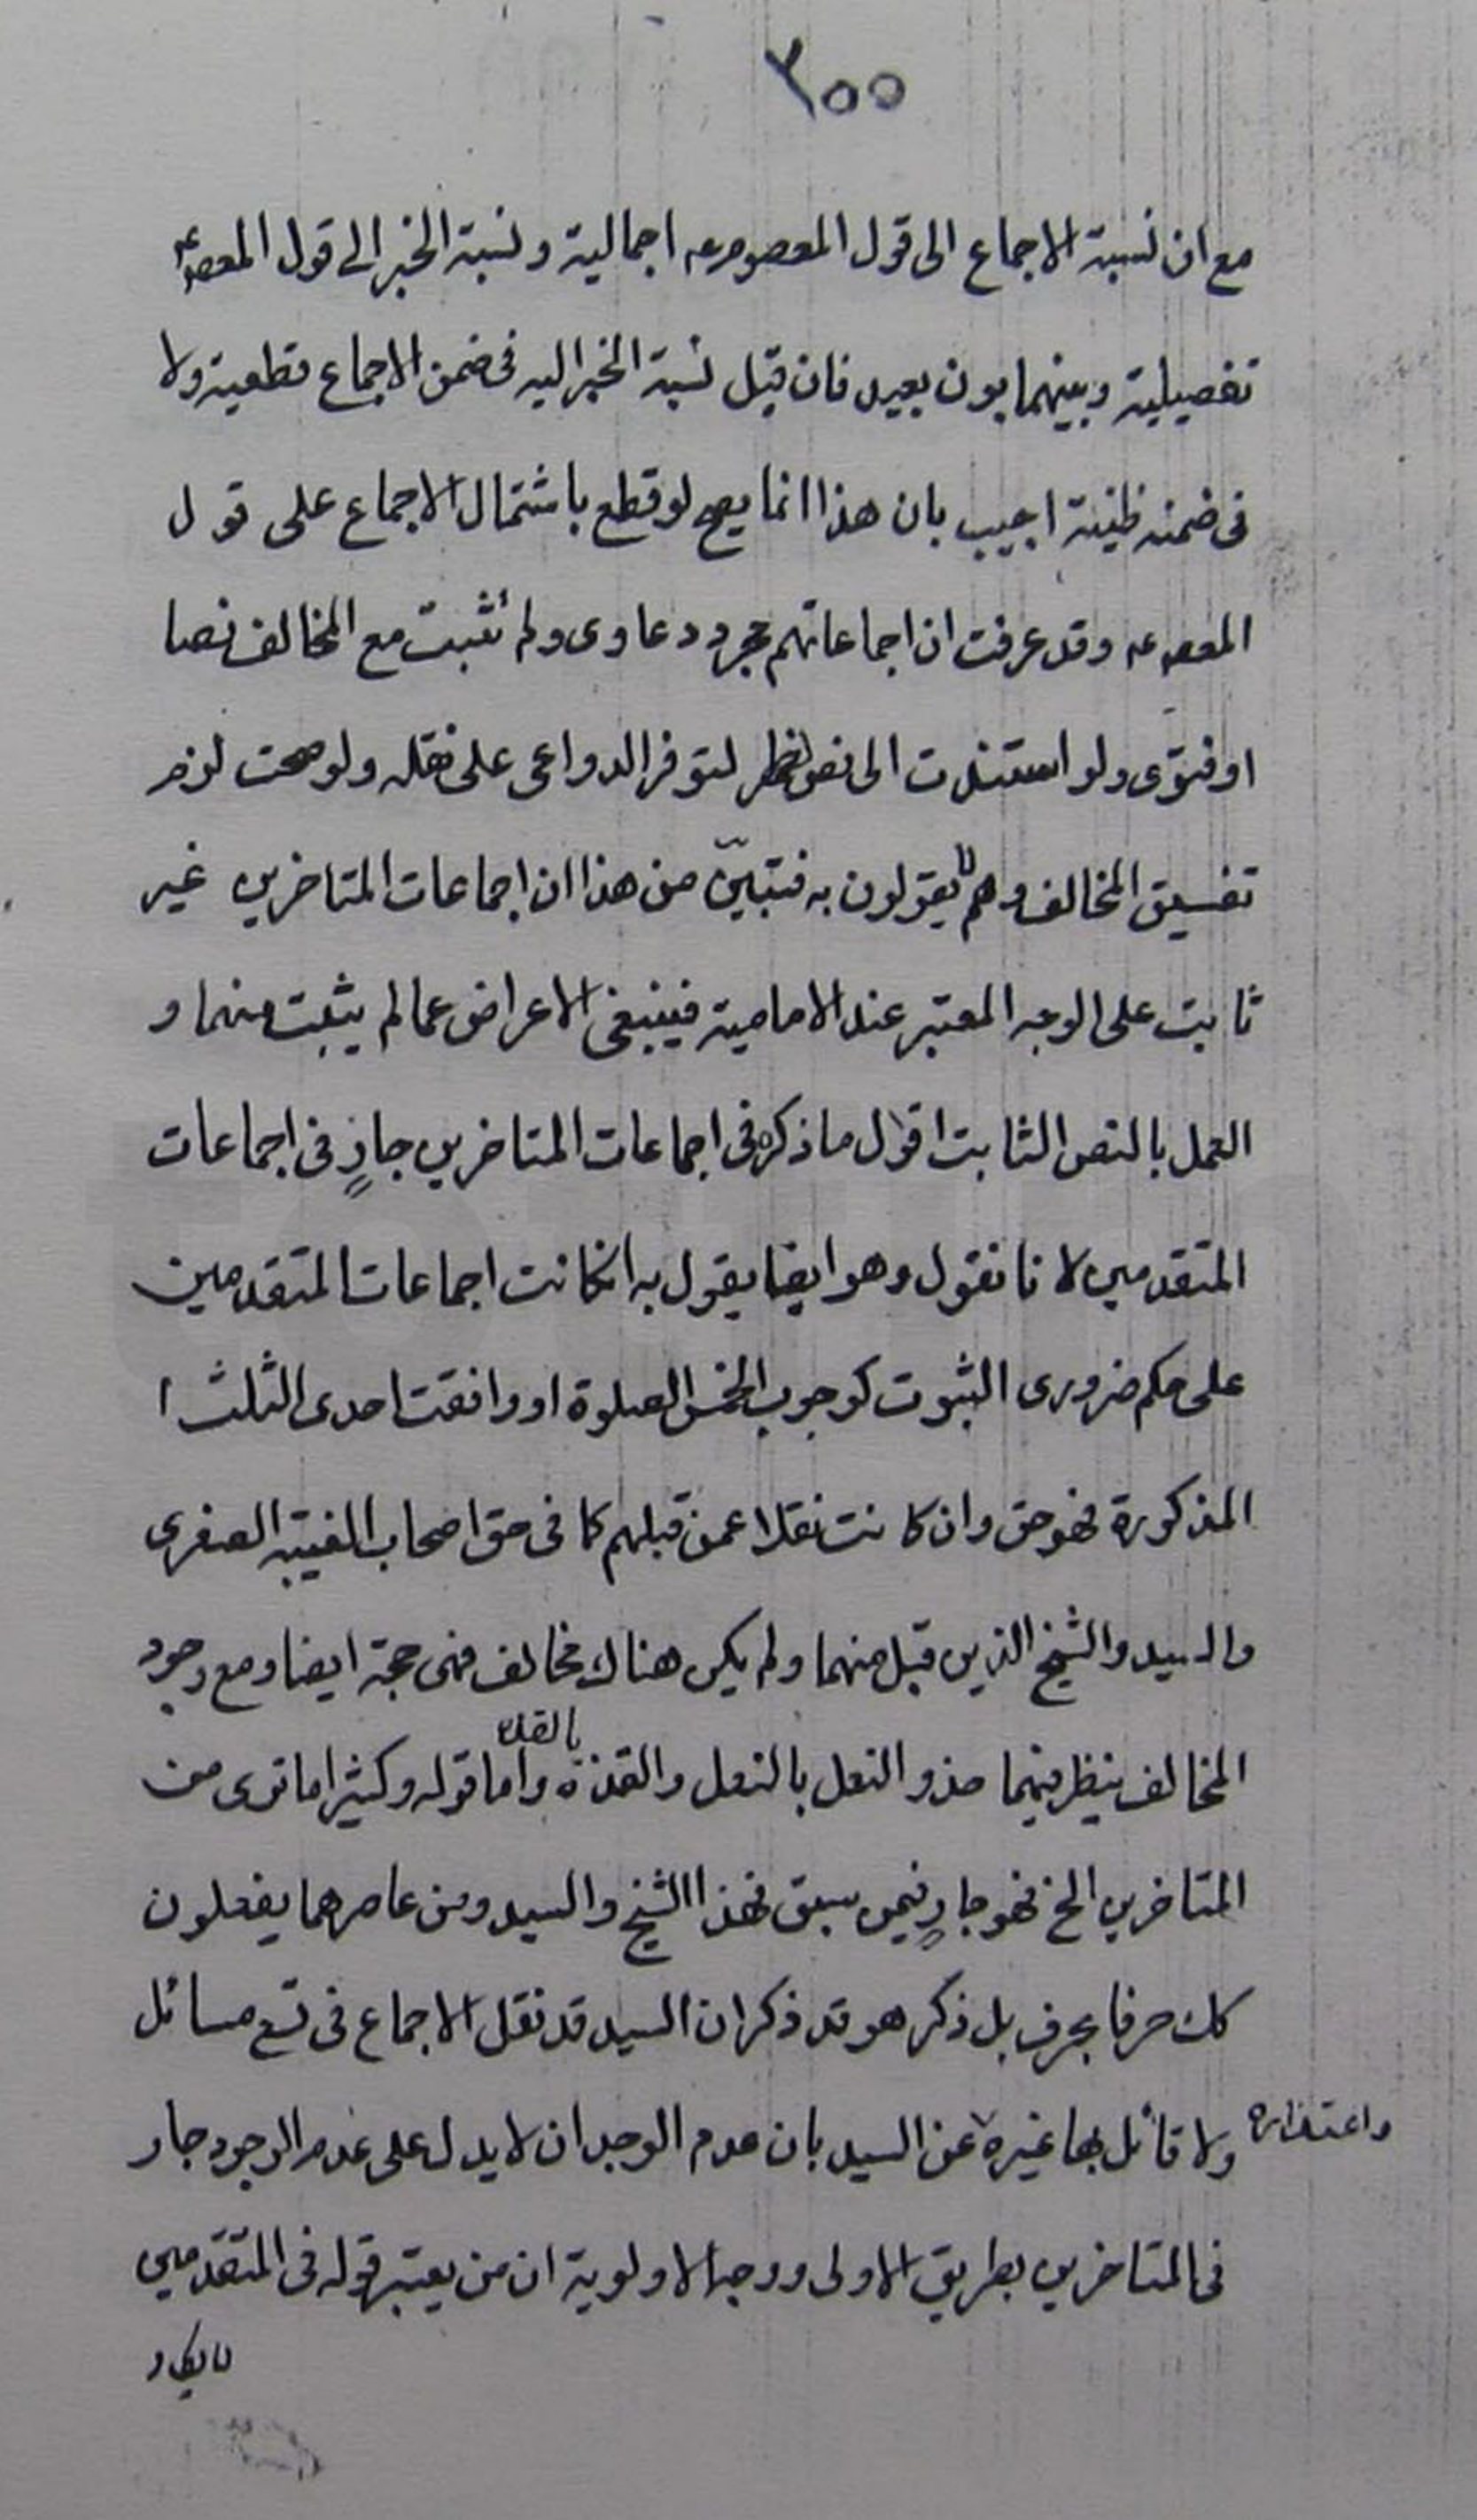 ٢٥٥
مع ان نسبة الاجماع الى قول المعصوم عه اجمالية ونسبة الخبر الى قول المعصوم ع
تفصيلية وبينهما بون بعيد فان قيل نسبة الخبر اليه فى ضمن الاجماع قطعية ولا
فى ضمنه ظنية اجيب بان هذا انما يصح لو قطع باشتمال الاجماع على قول
المعصوم عه وقد عرفت ان اجماعاتهم مجرد دعاوى ولم تثبت مع المخالف نصا
او فتوى ولو استندت الى نص لظهر لتوفر الدواعى على نقله ولو صحت لزم
تفسيق المخالف وهم لا يقولون به فتبيّن من هذا ان اجماعات المتاخرين غير
ثابت على الوجه المعتبر عند الامامية فينبغى الاعراض عما لم يثبت منهما و
العمل بالنص الثابت اقول ما ذكره فى اجماعات المتاخرين جارٍ فى اجماعات
المتقدمين لانا نقول وهو ايضا يقول به انكانت اجماعات المتقدمين
على حكم ضرورى الثبوت كوجوب الخمس الصلوة او وافقت احدى الثلث ا
المذكورة فهو حق وان كانت نقلا عمن قبلهم كما فى حق اصحاب الغيبة الصغرى
والسيد والشيخ الذين قبل منهما ولم يكن هناك مخالف فهى حجة ايضا ومع وجود
المخالف ينظر فيهما حذو النعل بالنعل والقذة بالقذة واما قوله وكثيرا ما ترى من
المتاخرين الخ فهو جارٍ فيمن سبق فهذا الشيخ والسيد ومن عاصرهما يفعلون
كك حرفا بحرف بل ذكر هو قد ذكر ان السيد قد نقل الاجماع فى تسع مسائل
ولا قائل بها غيره واعتذاره عن السيد بان عدم الوجدان لا يدل على عدم الوجود جار
فى المتاخرين بطريق الاولى ووجه الاولوية ان من يعتبر قوله فى المتقدمين
لا يكاد